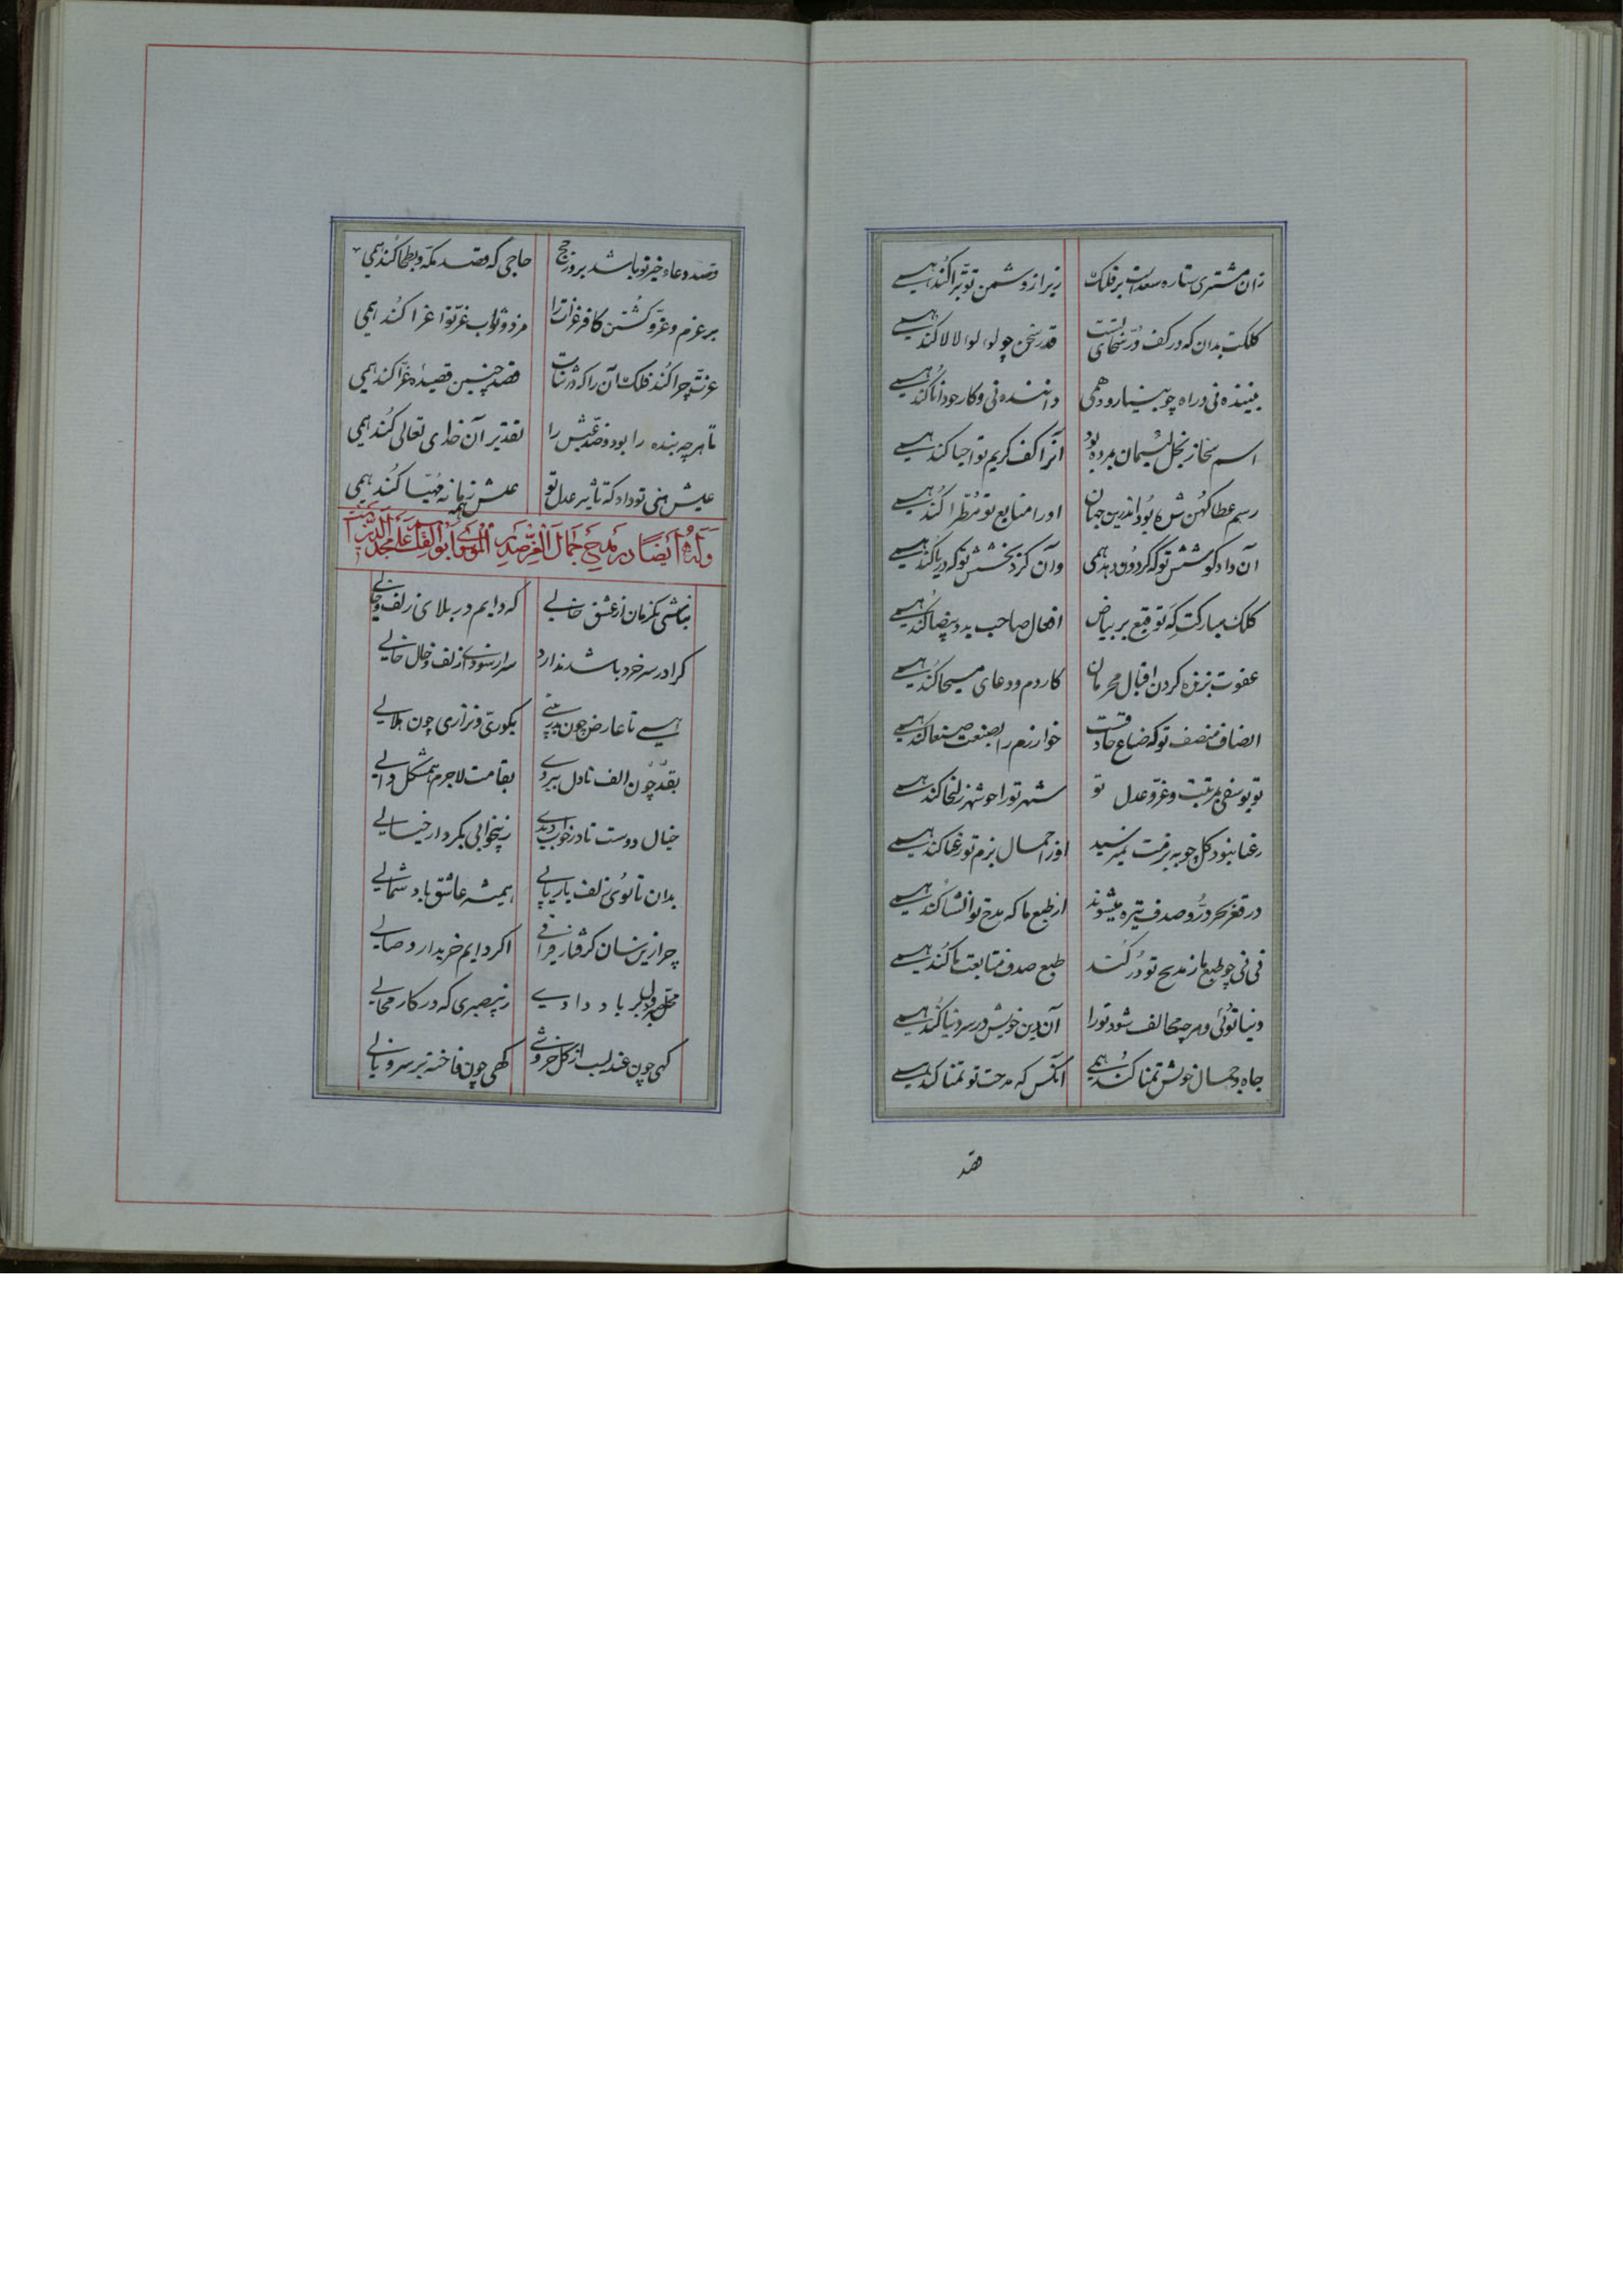 زان مشتری ستاره سعدست بر فلک زیرا ز دشمن تو تبرا کند همی
کلکت بدان که در کف در سخای تست قدر سخن چو لولو لالا کند همی
بیننده نی و راه چو بینا رود همی داننده نی و کار چو دانا کند همی
اسم سخا ز بخل لئیمان مرده بود آنرا کف کریم تو احیا کند همی
رسم عطا کهن شده بود اندرین جهان او را منابع تو مطرا کند همی
آن داد کوشش تو که گردون دهد همی وآن کرد بخشش تو که دریا کند همی
کلک مبارکت گه توقیع بر بیاض افعال صاحب ید بیضا کند همی
عفوت بزنده کردن اقبال مجرمان کار دم و دعای مسیحا کند همی
انصاف منصف تو که صناع حاذقست خوارزم را بصنعت صنعا کند همی
تو یوسفی بمرتبت و عز و عدل تو شهر تو را چو شهر زلیخا کند همی
رعنا بود گل و چو به بزمت همی رسید او را جمال بزم تو رعنا کند همی
در قعر بحر در و صدف تیره میشوند از طبع ما که مدح تو انشا کند همی
نی نی چو طبع ما ز مدیح تو در کند طبع صدف متابعت ما کند همی
دنیا توئی و هر چه مخالف شود تو را آن دین خویش در سر دنیا کند همی
جاه و جمال خویش تمنا کند همی آنکس که مدحت تو تمنا کند همی
قصد
قصد دعاء خیر تو باشد بروز حج حاجی که قصد مکه و بطحا کند همی
بر عزم و غزو کشتن کافر غزات را مزد و ثواب غز تو اغرا کند همی
عزت چرا کند فلک آن را که در ثنات قصد چنین قصیده غرا کند همی
تا هر چه بنده را بود و قصد عیش را تقدیر آن خدای تعالی کند همی
عیش هنی تو داد که تاثیر عدل تو عیش همه زمانه مهیا کند همی
وله ایضا در مدح جمال العز صدر الموسوی ابوالقاسم علی مجد الدین
نباشی یکزمان از عشق خالی که دایم در بلای زلف و خالی
کرا در سر خرد باشد ندارد سر از سودای زلف و خال خالی
همی تا عارض چون بدر بینی بکوژی و نزاری چون هلالی
بقد چون الف تا دل ببردی بقامت لاجرم همشکل دالی
خیال دوست تا در خواب دیدی ز بیخوابی بکردار خیالی
بدان تا بوی زلف یار یابی همیشه عاشق باد شمالی
چرا زینسان گرفتار فراقی اگر دایم خریدار وصالی
محل دل بر باد دادی ز بیصبری که در کار محالی
گهی چون عندلیب از گل خروشی گهی چون فاخته بر سرو نالی